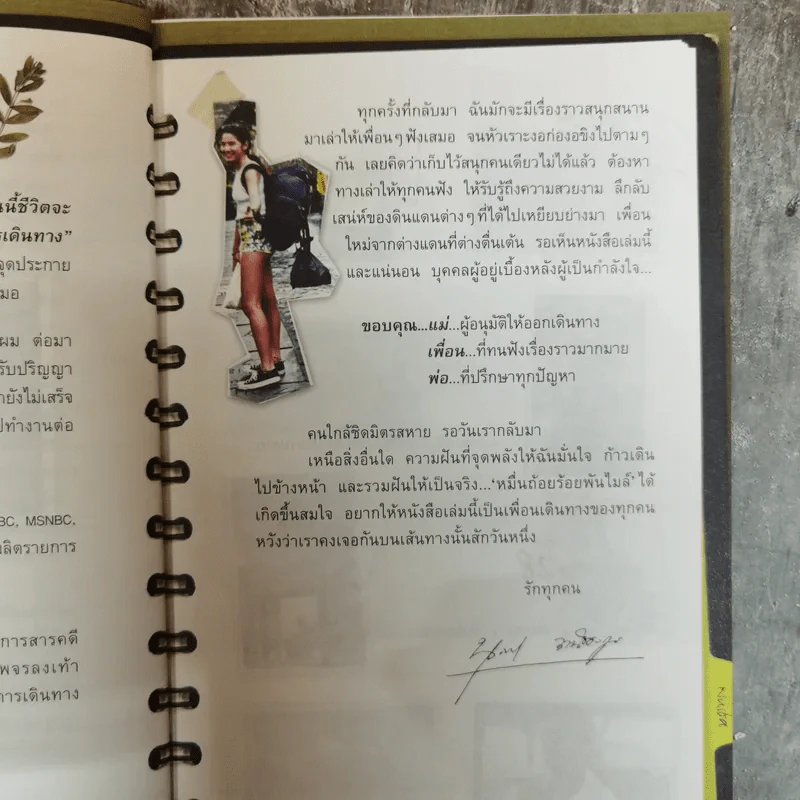 นนี้ชีวิตจะ
รเดินทาง”
จุดประกาย
สมอ
ผม ต่อมา
รับปริญญา
ายังไม่เสร็จ
ปทำงานต่อ
BC, MSNBC,
ผลิตรายการ
การสารคดี
พจรลงเท้า
การเดินทาง
ทุกครั้งที่กลับมา ฉันมักจะมีเรื่องราวสนุกสนาน
มาเล่าให้เพื่อนๆ ฟังเสมอ จนหัวเราะงอก่องอขิงไปตามๆ
กัน เลยคิดว่าเก็บไว้สนุกคนเดียวไม่ได้แล้ว ต้องหา
ทางเล่าให้ทุกคนฟัง ให้รับรู้ถึงความสวยงาม ลึกลับ
เสน่ห์ของดินแดนต่างๆ ที่ได้ไปเหยียบย่างมา เพื่อน
ใหม่จากต่างแดนที่ต่างตื่นเต้น รอเห็นหนังสือเล่มนี้
และแน่นอน บุคคลผู้อยู่เบื้องหลังผู้เป็นกำลังใจ...
ขอบคุณ...แม่...ผู้อนุมัติให้ออกเดินทาง
เพื่อน...ที่ทนฟังเรื่องราวมากมาย
พ่อ...ที่ปรึกษาทุกปัญหา
คนใกล้ชิดมิตรสหาย รอวันเรากลับมา
เหนือสิ่งอื่นใด ความฝันที่จุดพลังให้ฉันมั่นใจ ก้าวเดิน
ไปข้างหน้า และรวมฝันให้เป็นจริง...‘หมื่นถ้อยร้อยพันไมล์’ ได้
เกิดขึ้นสมใจ อยากให้หนังสือเล่มนี้เป็นเพื่อนเดินทางของทุกคน
หวังว่าเราคงเจอกันบนเส้นทางนั้นสักวันหนึ่ง
รักทุกคน